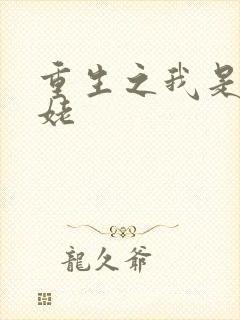 重生之我是
姥
龍久爺